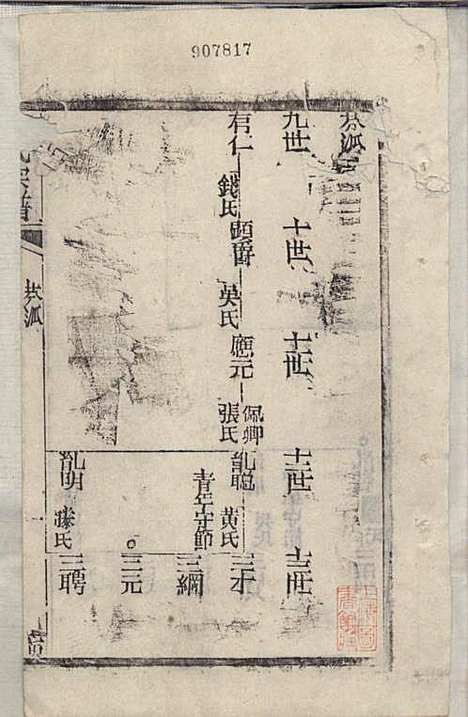 907817
恭派
九世
十世
十一世
十二世
十三世
有仁
錢氏
顯爵
吳氏
應元
佩卿
張氏
胤聰
黃氏
青年守節
三才
三綱
三元
胤明
滕氏
三聘
氏宗譜
恭派